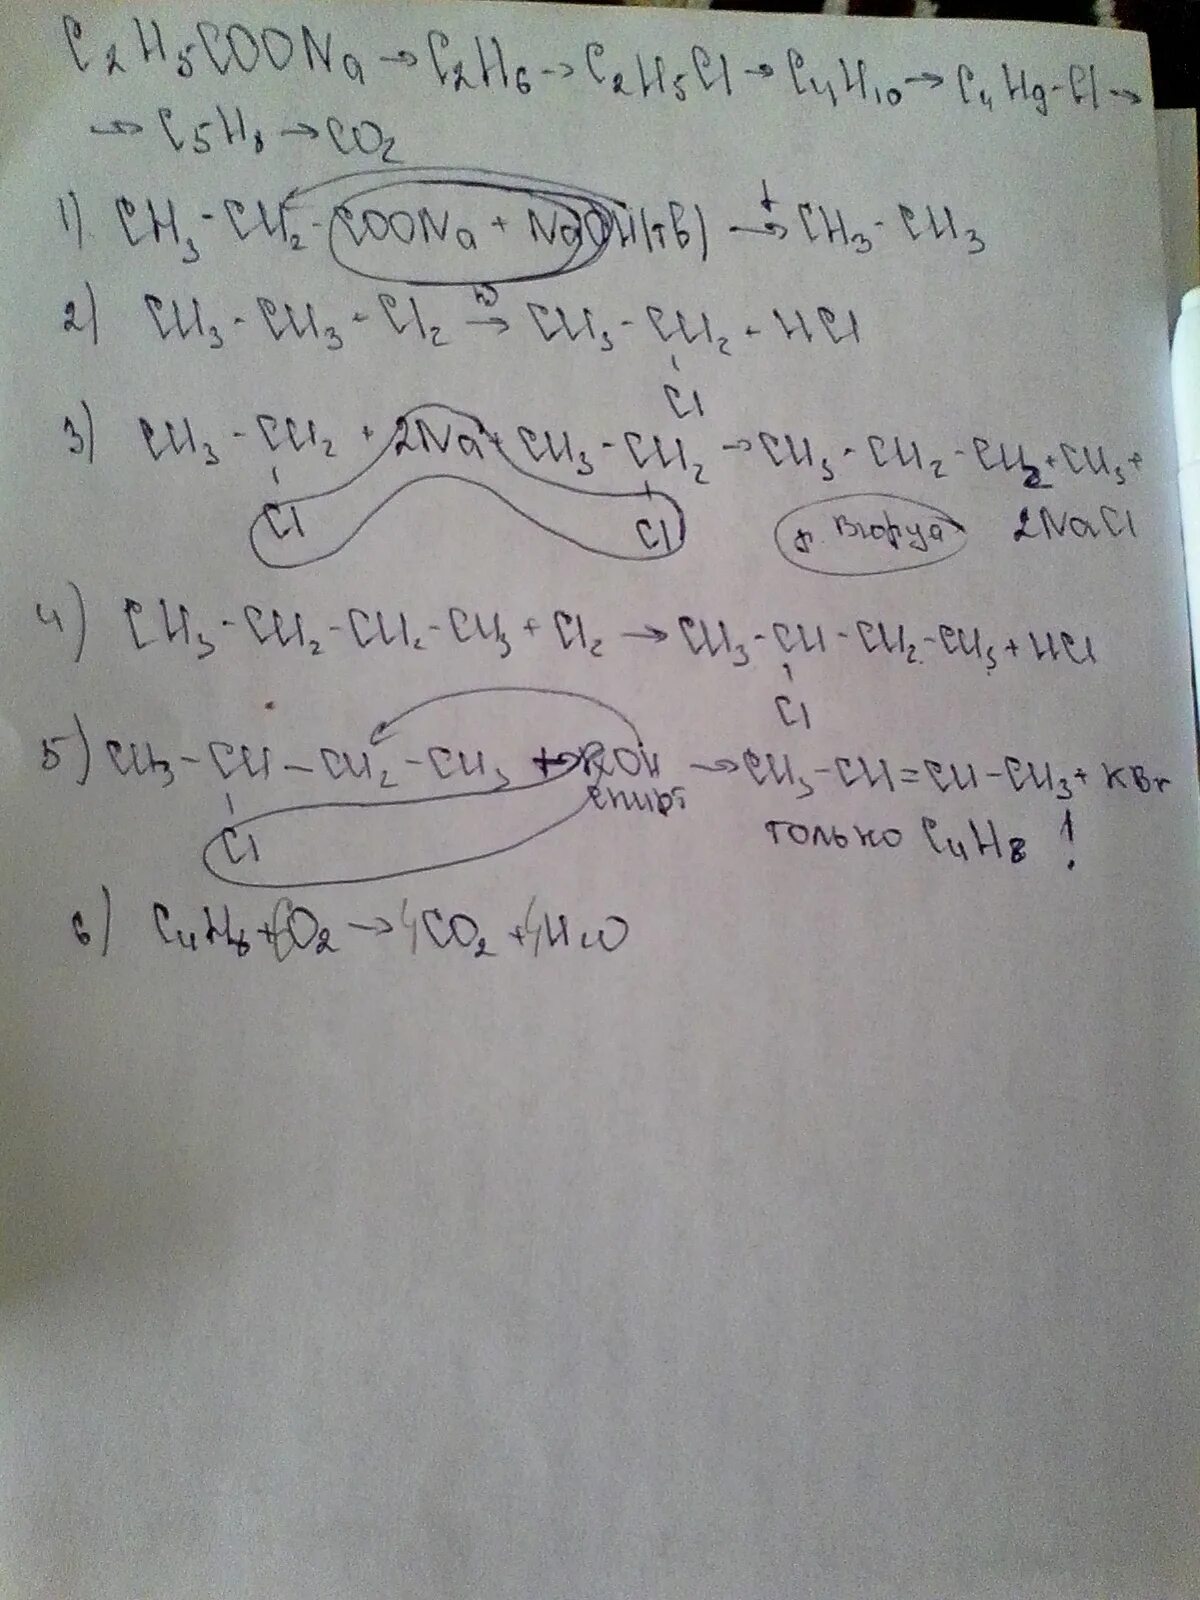 C₂H₅COONa → C₂H₆ → C₂H₅Cl → C₄H₁₀ → C₄H₉-Cl →
→ C₅H₈ → CO₂
1) CH₃-CH₂-COONa + NaOH(тв) →ᵗ CH₃-CH₃
2) CH₃-CH₃ + Cl₂ → CH₃-CH₂ + HCl
Cl
3) CH₃-CH₂ + 2Na + CH₃-CH₂ → CH₃-CH₂-CH₂+CH₃+
Cl Cl р. Вюрца 2NaCl
4) CH₃-CH₂-CH₂-CH₃ + Cl₂ → CH₃-CH-CH₂-CH₃ + HCl
Cl
5) CH₃-CH-CH₂-CH₃ + KOH → CH₃-CH=CH-CH₃ + KBr
Cl спирт только C₄H₈ !
6) C₄H₈ + 6O₂ → 4CO₂ + 4H₂O